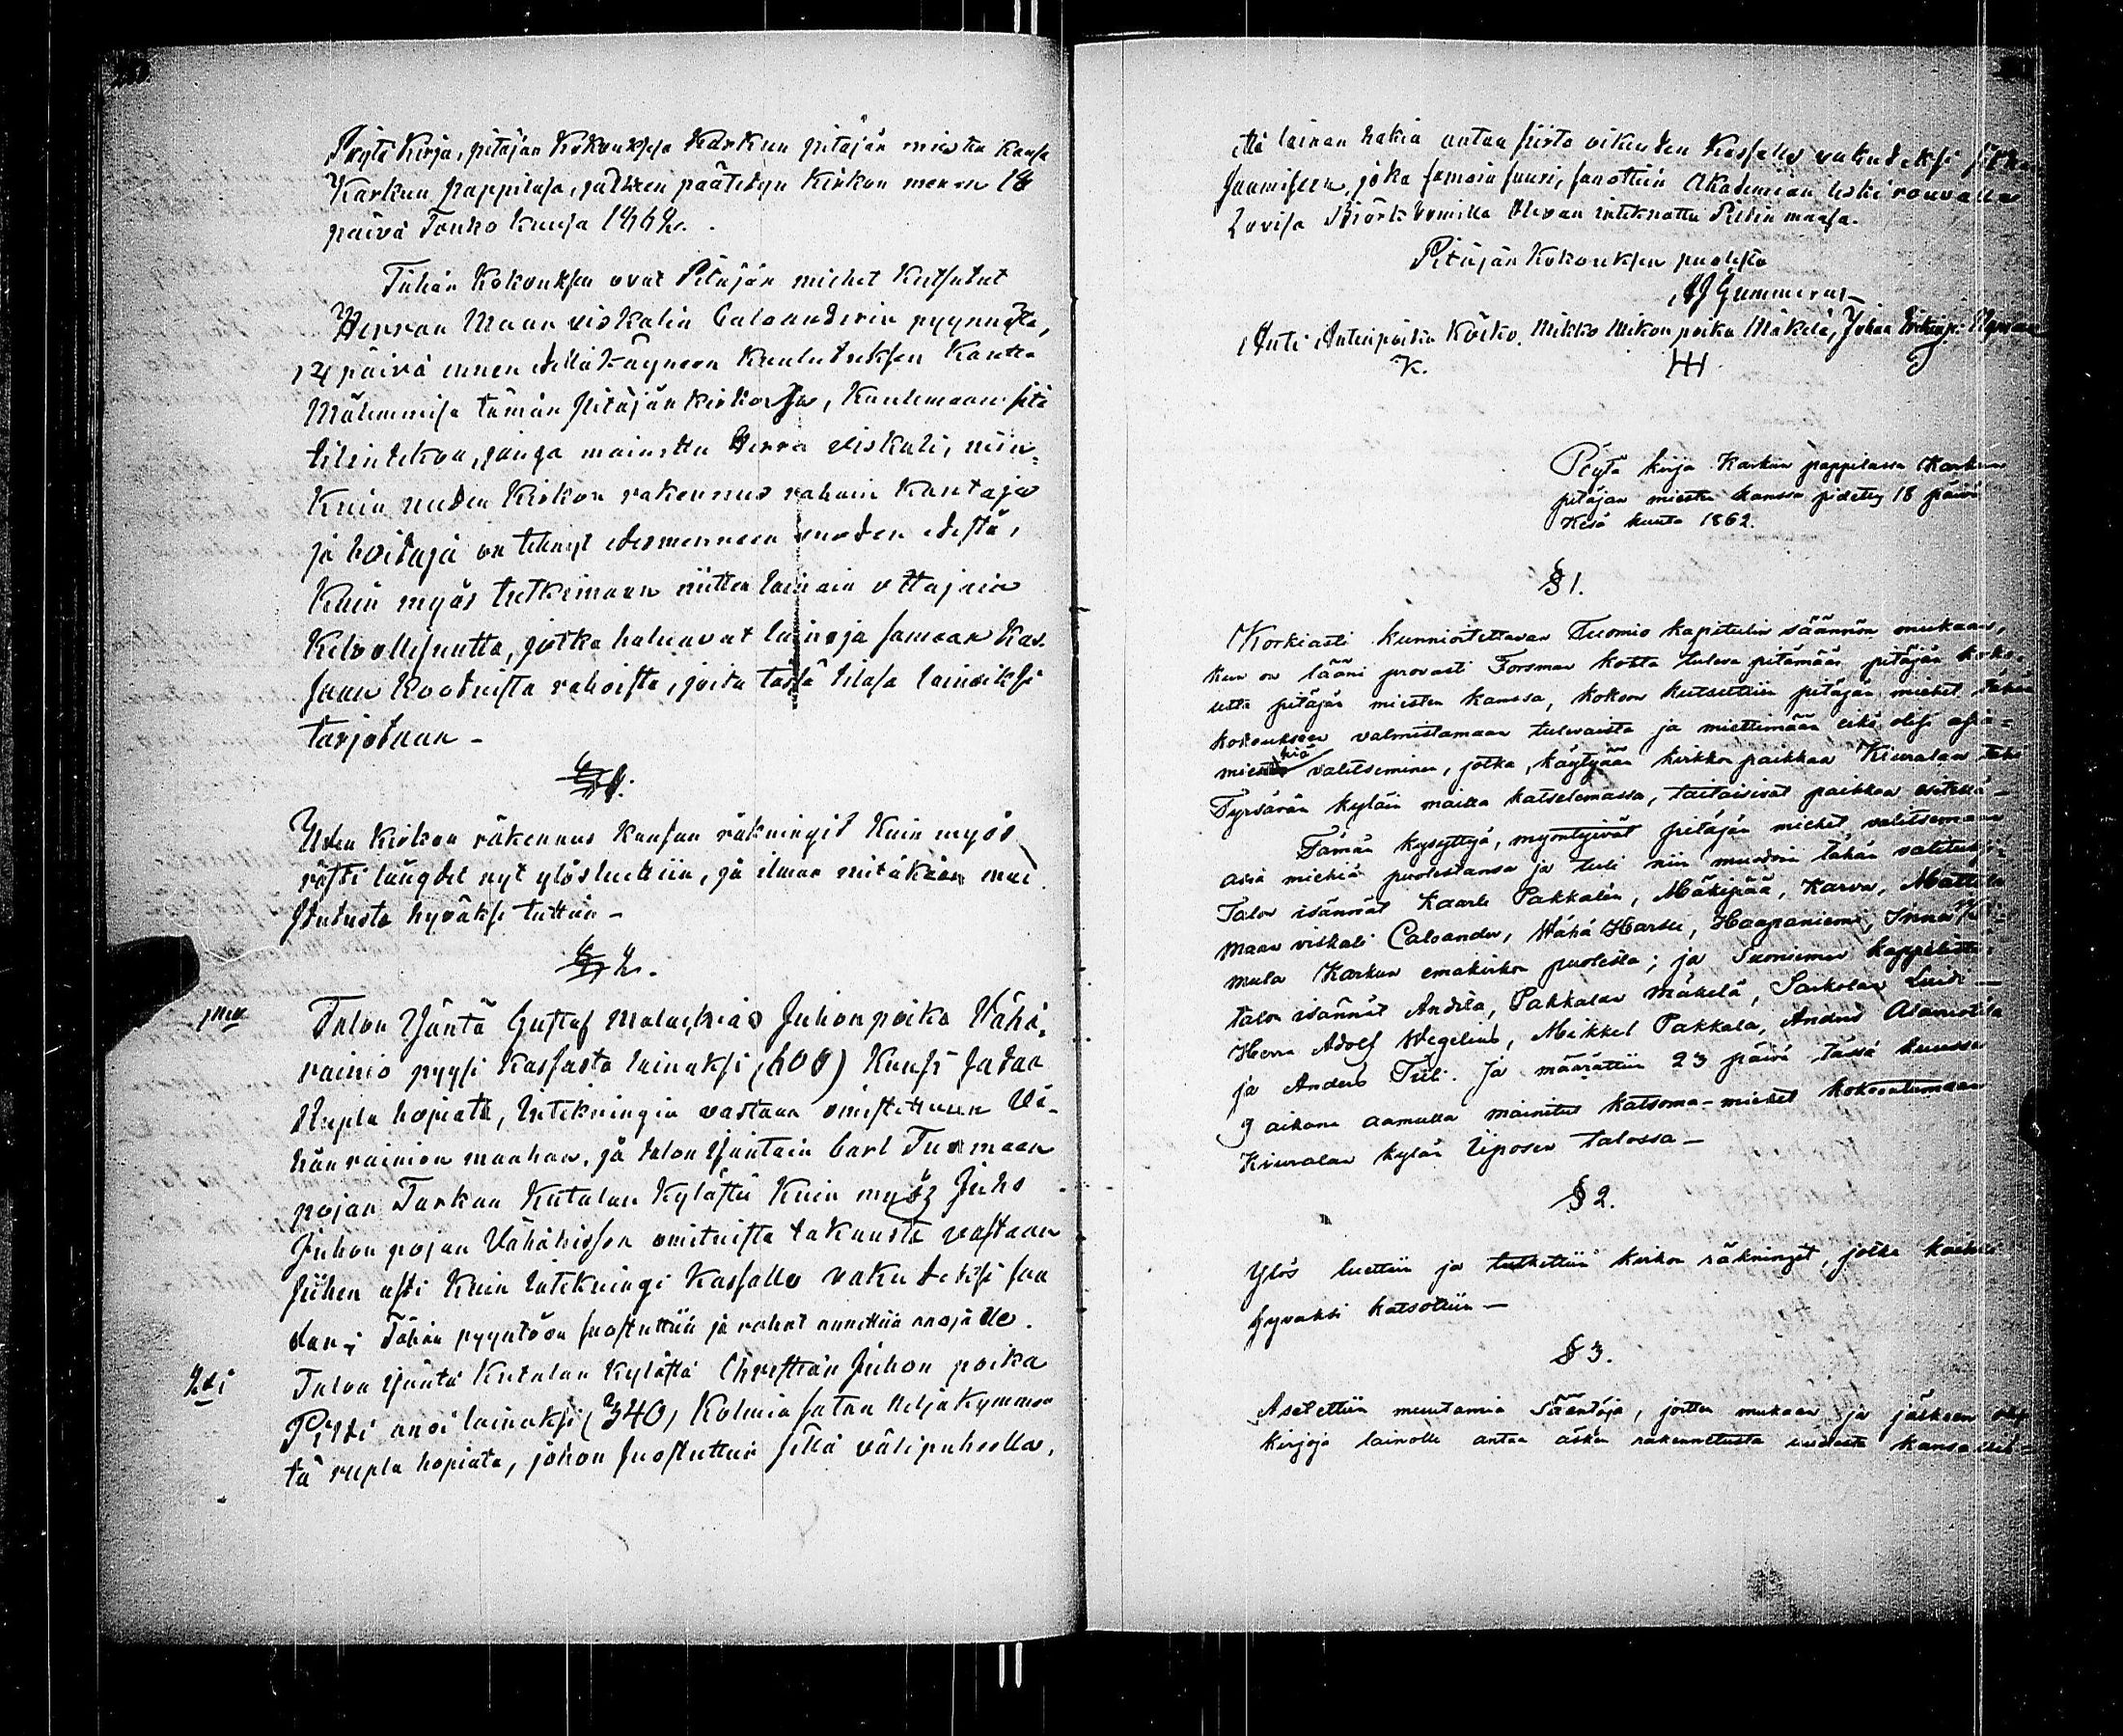 Pöytä Kirja, pitäjän Kokouksesa Karkun pitäjän miesten kansa
Karkun pappilasa, jälkeen päätetyn Kirkon menon 18
päivä Touko kuusa 1862.
Tähän Kokouksen ovat Pitäjän miehet kutsutut
Herran Maan viskalin Caloanderin pyynnöstä,
14 päivä ennen edelläkäyneen Kuulutuksen kautta
Mälemmisä tämän Pitäjän kirkoisa, kuulemaan sitä
tilintekoa, jonga mainittu Herra viskali, niin-
kuin uuden Kirkon rakennus rahain kantaja
ja hoitaja on tehnyt edesmenneen vuoden edestä,
kuin myös tutkimaan niitten lainain ottajain
kelvollisuutta, jotka haluavat lainoja samaan kas-
saan kootuista rahoista, joita tässä tilasa lainaiksi
tarjotaan -
§ 1.
Uden Kirkon rakennus kansan räkningit kuin myös
rästi längdit nyt ylösluettiin, ja ilman mitäkään mui
stutusta hyväksi tuttiin -
§ 2.
Talon Isäntä Gustaf Malachias Juhonpoika Vähä-
rainio pyysi kassasta lainaksi (600) kuusi sataa
Rupla hopiata, Intekningin vastaan omistettuun Vä-
hän rainion maahan, ja talon Isäntäin Carl Tuomaan
pojan Tarkan Kutalan Kylästä kuin myös Juho
Juhon pojan Vähähissan omituista takuusta vastaan
siihen asti kuin Intekningi Kassalle vakudeksi saa
dan; Tähän pyyntöön suostuttiin ja rahat annettiin anojalle.
2xi Talon Isäntä Kutalan Kylästä Christian Juhon poika
Pirtti anoi lainaksi (340) Kolmia sataa neljäkymmen
tä rupla hopiata, johon suostuttiin sillä välipuheella,
että lainan hakia antaa siirto oikeuden Kassalle vakudeksi
saamiseen, joka samoin suuri, sanottiin Akademian leski rouvalla
Lovisa Björkbomilla olevan inteknattu Pirtin maasa.
Pitäjän Kokouksen puolesta
AJ Gummerus
Anti Antinpoika Köikö. Mikko Mikon poika Mäkelä, Juhan
K.
Pöytä kirja Karkun pappilassa Karkun
pitäjän miesten kanssa pidetty 18 päivä
Kesä kuuta 1862.
§ 1.
Korkiasti kunnioitettavan Tuomio kapitulin säännön mukaan,
kun on lääni provasti Forsman kohta tuleva pitämään pitäjän koko-
usta pitäjän miesten kanssa, kokoon kutsuttiin pitäjän miehet tähän
kokoukseen valmistamaan tulevaista ja miettimään eikä olisi asia-
miehiä valitseminen, jotka, käytyään kirkko paikkaa Kiuralan
Tyrsävän kyläin mailla katselemassa, taitaisivat paikkaa esitellä -
Tämän kysyttyä, myöntyivät pitäjän miehet valitsemaan
asia miehiä puolestansa ja tuli niin muodoin tähän valituksi
Talon isännät Kaarle Pakkalin, Mäkipää, Karva, Mattila
Maan viskali Caloander, Vähä Harsu, Haapaniemi,
mula Karkun emäkirkon puolesta; ja Suoniemen kappelista
talon isännät Andila, Pakkalan Mäkelä, Sarkolan
Herra Adolf Wegelius, Mikkel Pakkala, Anders Alamistola
ja Anders Tiili. Ja määrättiin 23 päivä tässä kuussa
9 aikana aamulla mainitut katsoma-miehet kokoontumaan
Kiuralan kylän Uiposen talossa -
§ 2.
Ylös luettiin ja tutkittiin kirkon räkningit, jotka kaikki
hyvaksi katsottiin -
§ 3.
Asetettiin muutamia Sääntöjä, joitten mukaan ja jälkeen
kirjoja lainolle antaa äsken rakennetusta uudesta